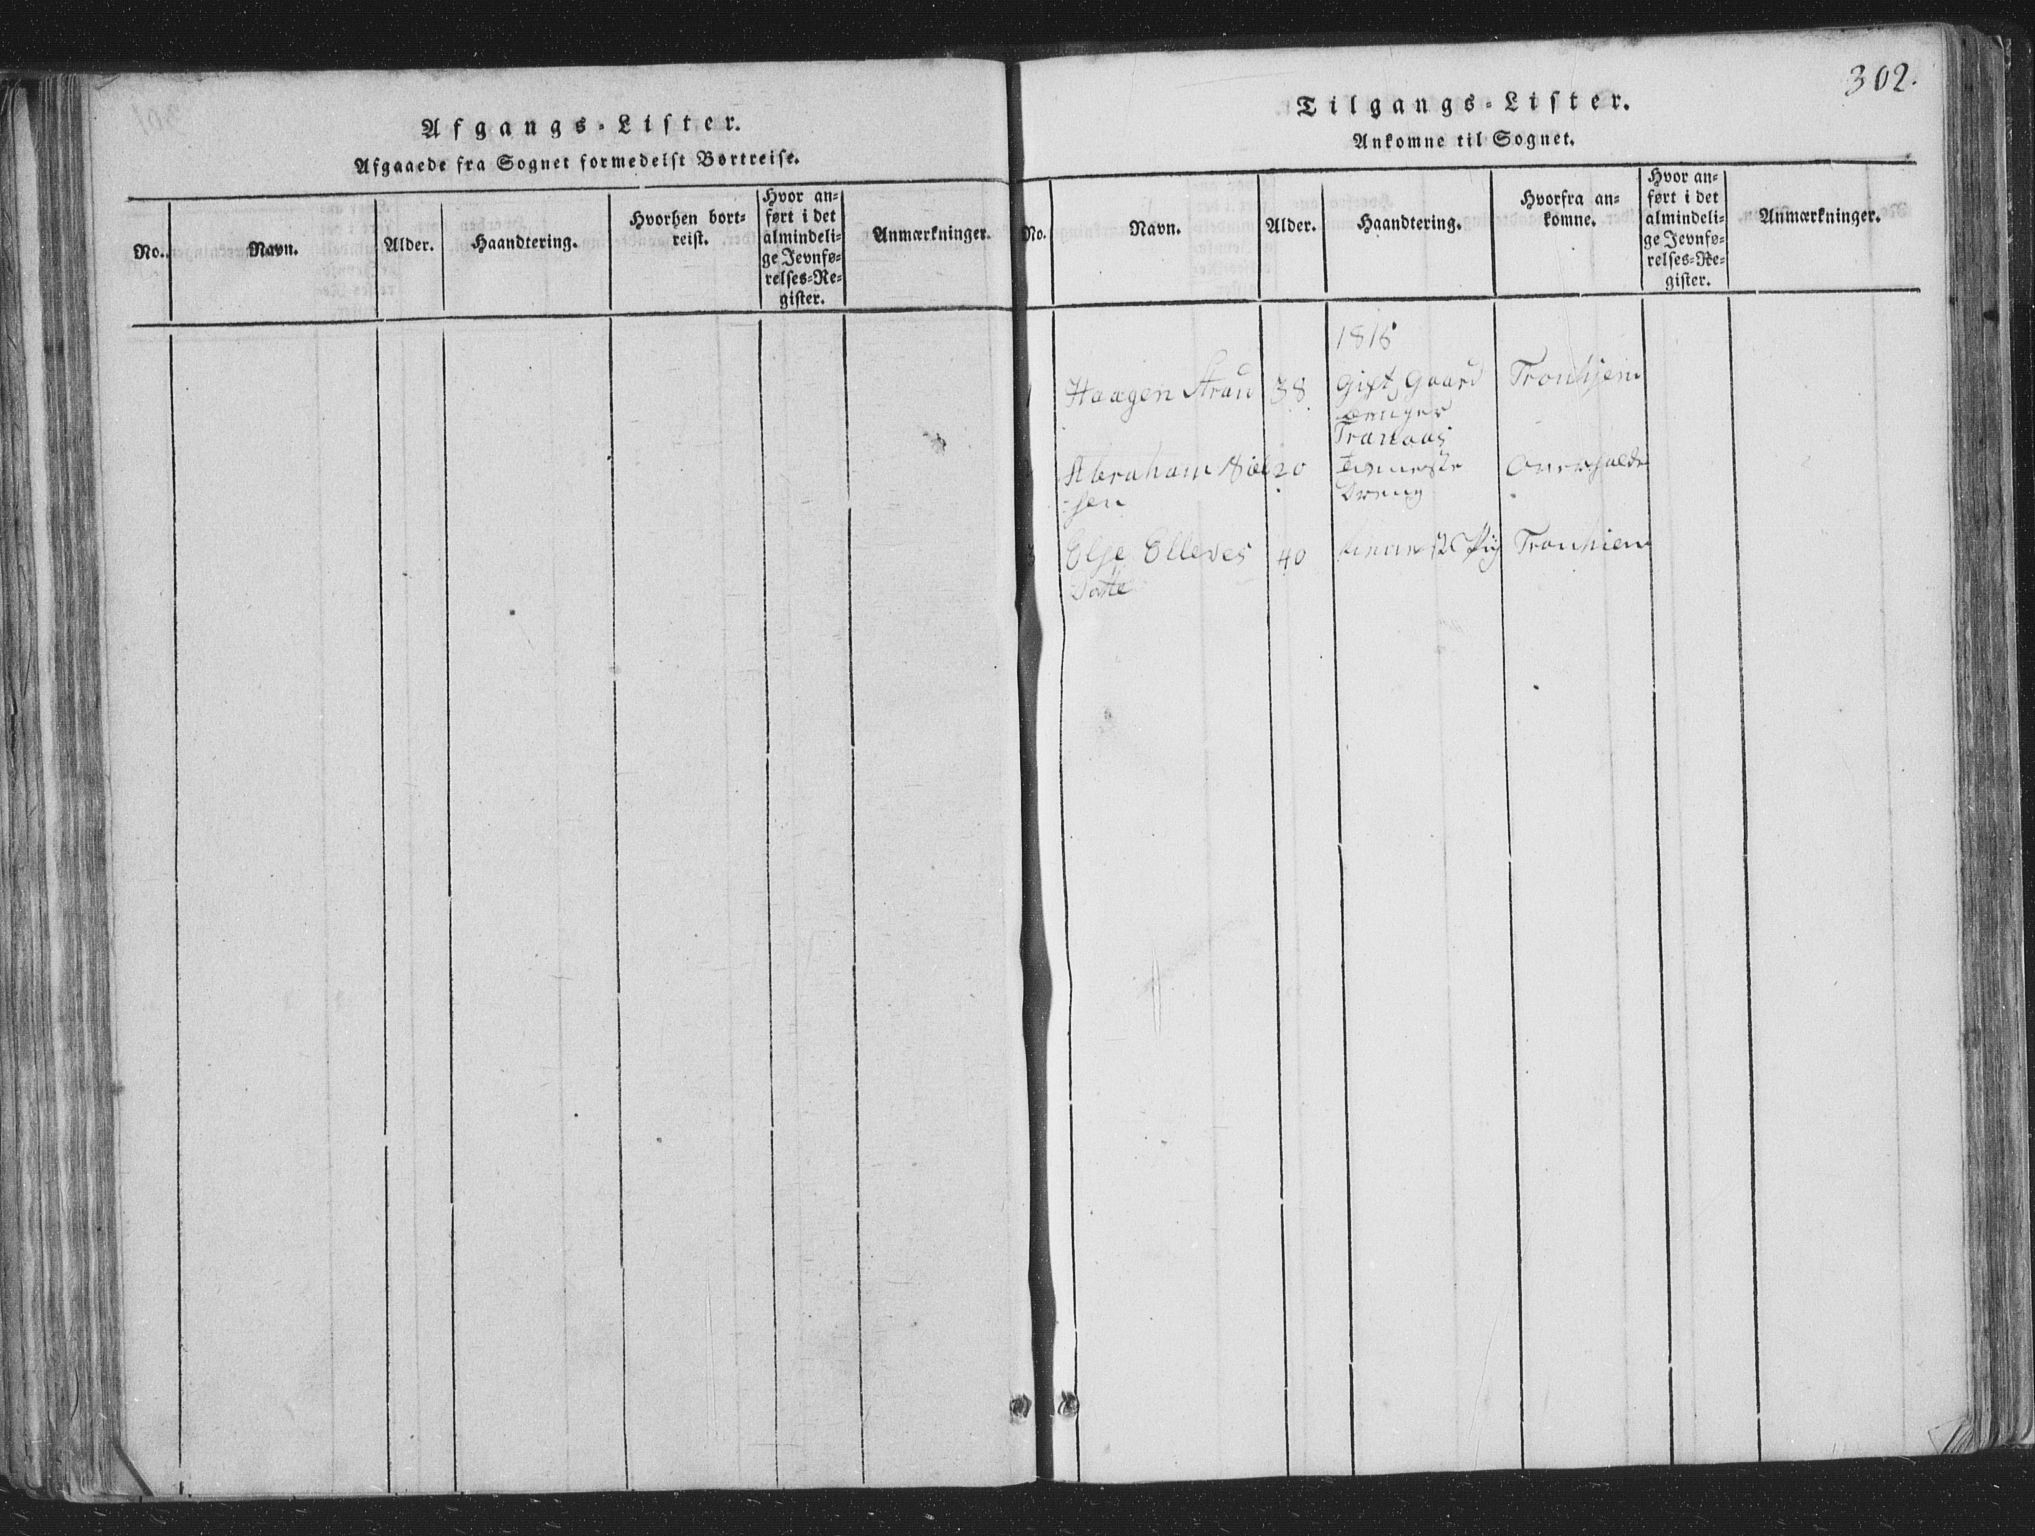 Afgangs-Lister.
Afgaaede fra Sognet formedelst Bortreise.
No.
Navn.
Alder.
Haandtering.
Hvorhen bort-
reist.
Hvor an-
ført i det
almindeli-
ge Jevnfø-
relses-Re-
gister.
Anmærkninger.
302.
Tilgangs-Lister.
Ankomne til Sognet.
No.
Navn.
Alder.
Haandtering.
Hvorfra an-
komne.
Hvor an-
ført i det
almindeli-
ge Jevnfø-
relses-Re-
gister.
Anmærkninger.
1816
Haagen 38 Gift, Gaard Tronhjem
Tranaas
Abraham 20
sen Dreng
3 Else Elleves 40 Tronhiem